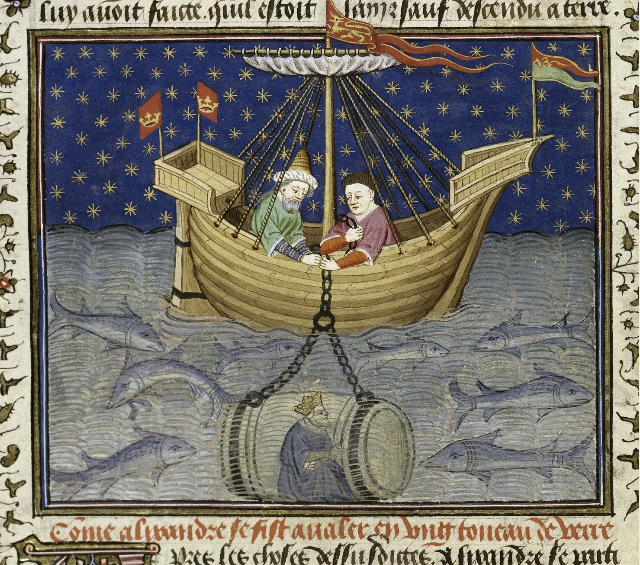 luy avoit faicte. quil estoit jamz sauf descendu a terre
Come alixandre se fist avaler en ung toneau de verre
Pres les choses dessusdictes. Alixandre se parti